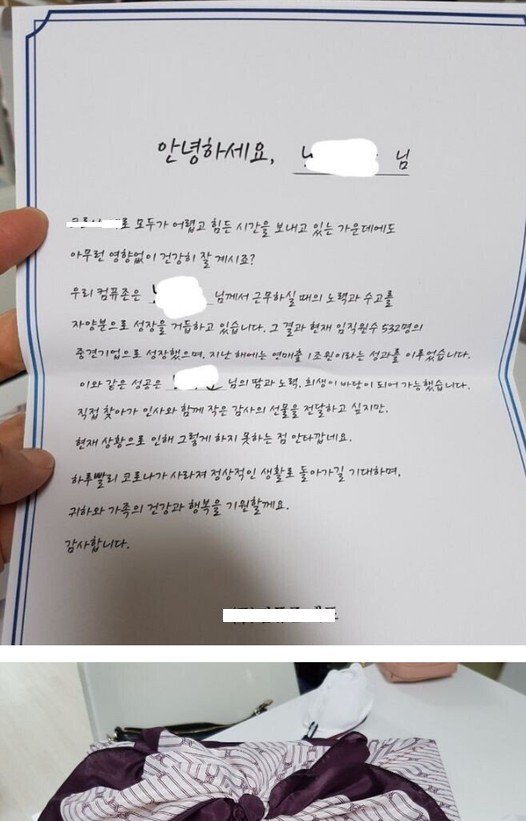 안녕하세요, 님
로 모두가 어렵고 힘든 시간을 보내고 있는 가운데에도
아무런 영향없이 건강히 잘 계시죠?
우리 컴퓨존은 님께서 근무하실 때의 노력과 수고를
자양분으로 성장을 거듭하고 있습니다. 그 결과 현재 임직원수 532명의
중견기업으로 성장했으며, 지난 해에는 연매출 1조원이라는 성과를 이루었습니다.
이와 같은 성공은 님의 땀과 노력, 희생이 바탕이 되어 가능했습니다.
직접 찾아가 인사와 함께 작은 감사의 선물을 전달하고 싶지만,
현재 상황으로 인해 그렇게 하지 못하는 점 안타깝네요.
하루빨리 코로나가 사라져 정상적인 생활로 돌아가길 기대하며,
귀하와 가족의 건강과 행복을 기원할게요.
감사합니다.